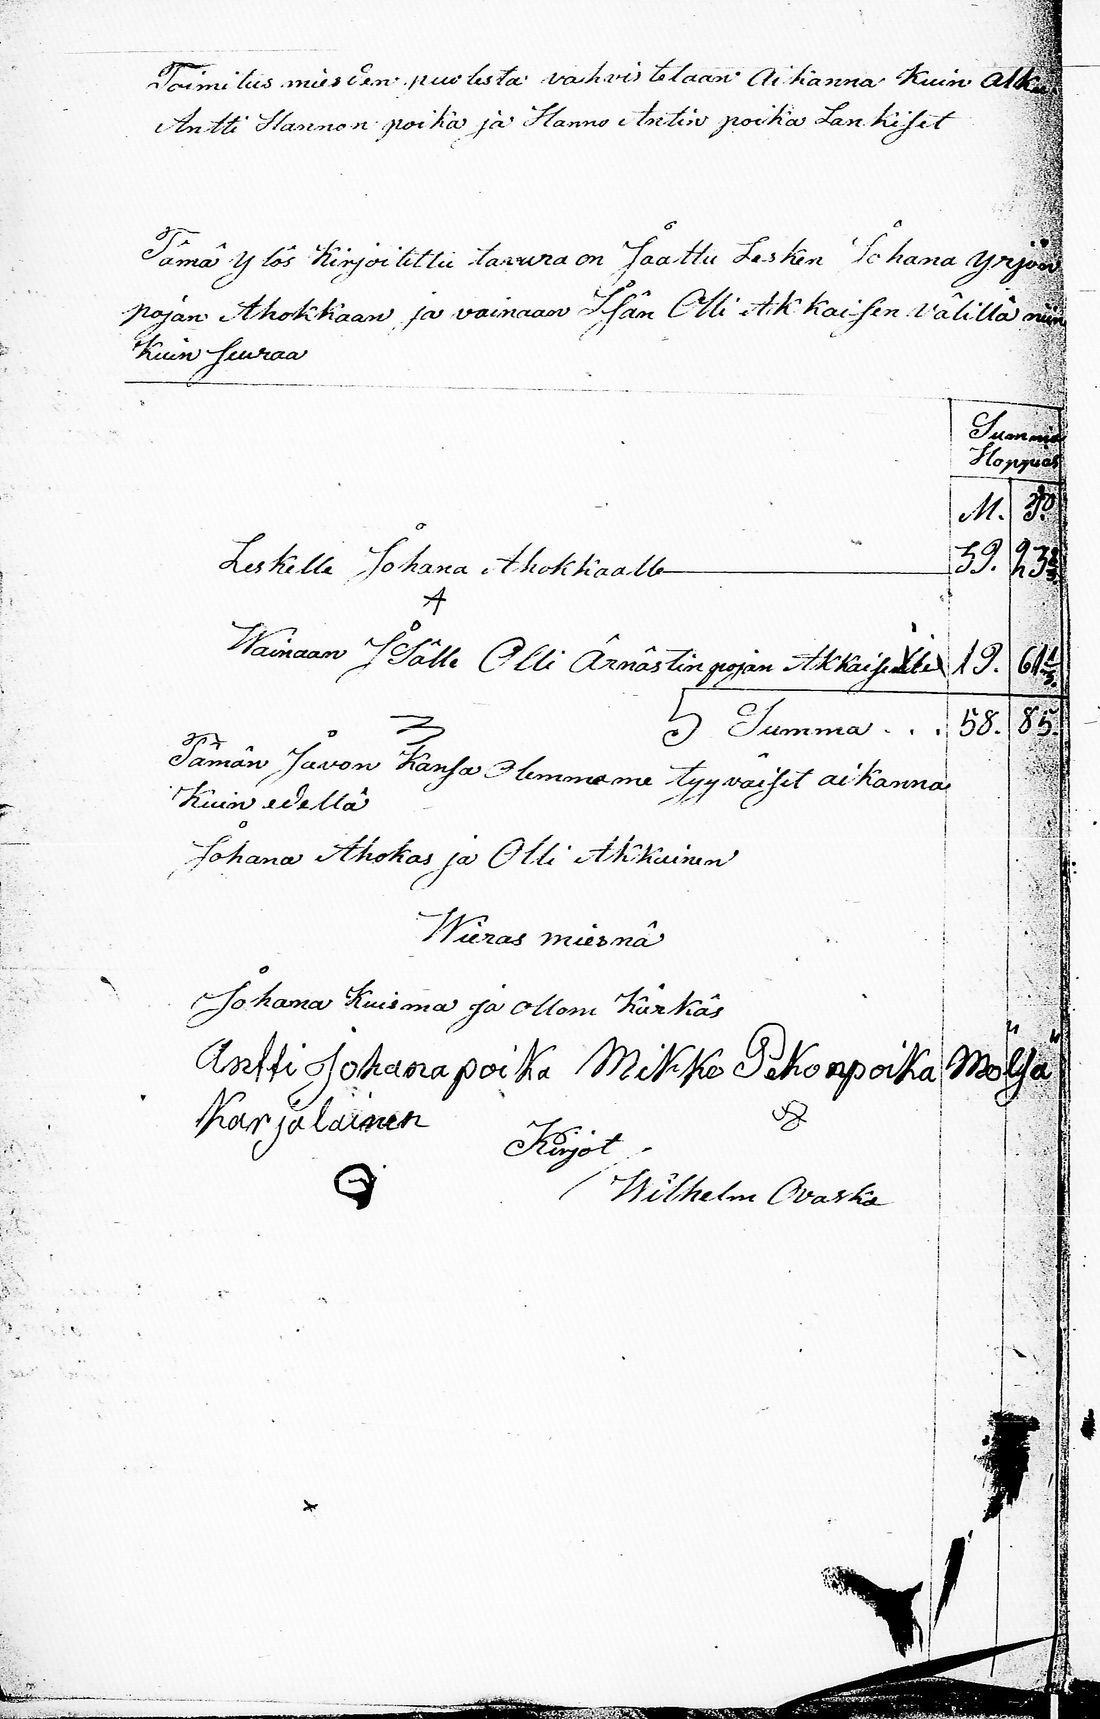 Toimitus miesden puolesta vahvistelaan Aikanna Kuin alku
Antti Hannon poika ja Hanno Antin poika Lankiset
Tämä ylös Kirjoitettu tavara on Jaattu Lesken Johana yrjön
pojan Ahokkaan ja vainaan Isän Olli Akkaisen välillä niin
Kuin seuraa
Summa
Hoppias
M.
Leskelle Johana Ahokkaalle 39. 23 2/3.
Wainaan Isälle Olli Ärnästin pojan Akkaiselle 19. 61 1/3.
Summa . . . 58. 85.
Tämän Javon Kansa olemmeme tyyväiset aikanna
Kuin edellä
Johana Ahokas ja Olli Akkainen
Wieras miesnä
Johana Kuisma ja ollom Kärkäs
Antti Johanapoika Mikko Pekonpoika Mölsä
Karjalainen
Kirjot
Wilhelm Ovaska